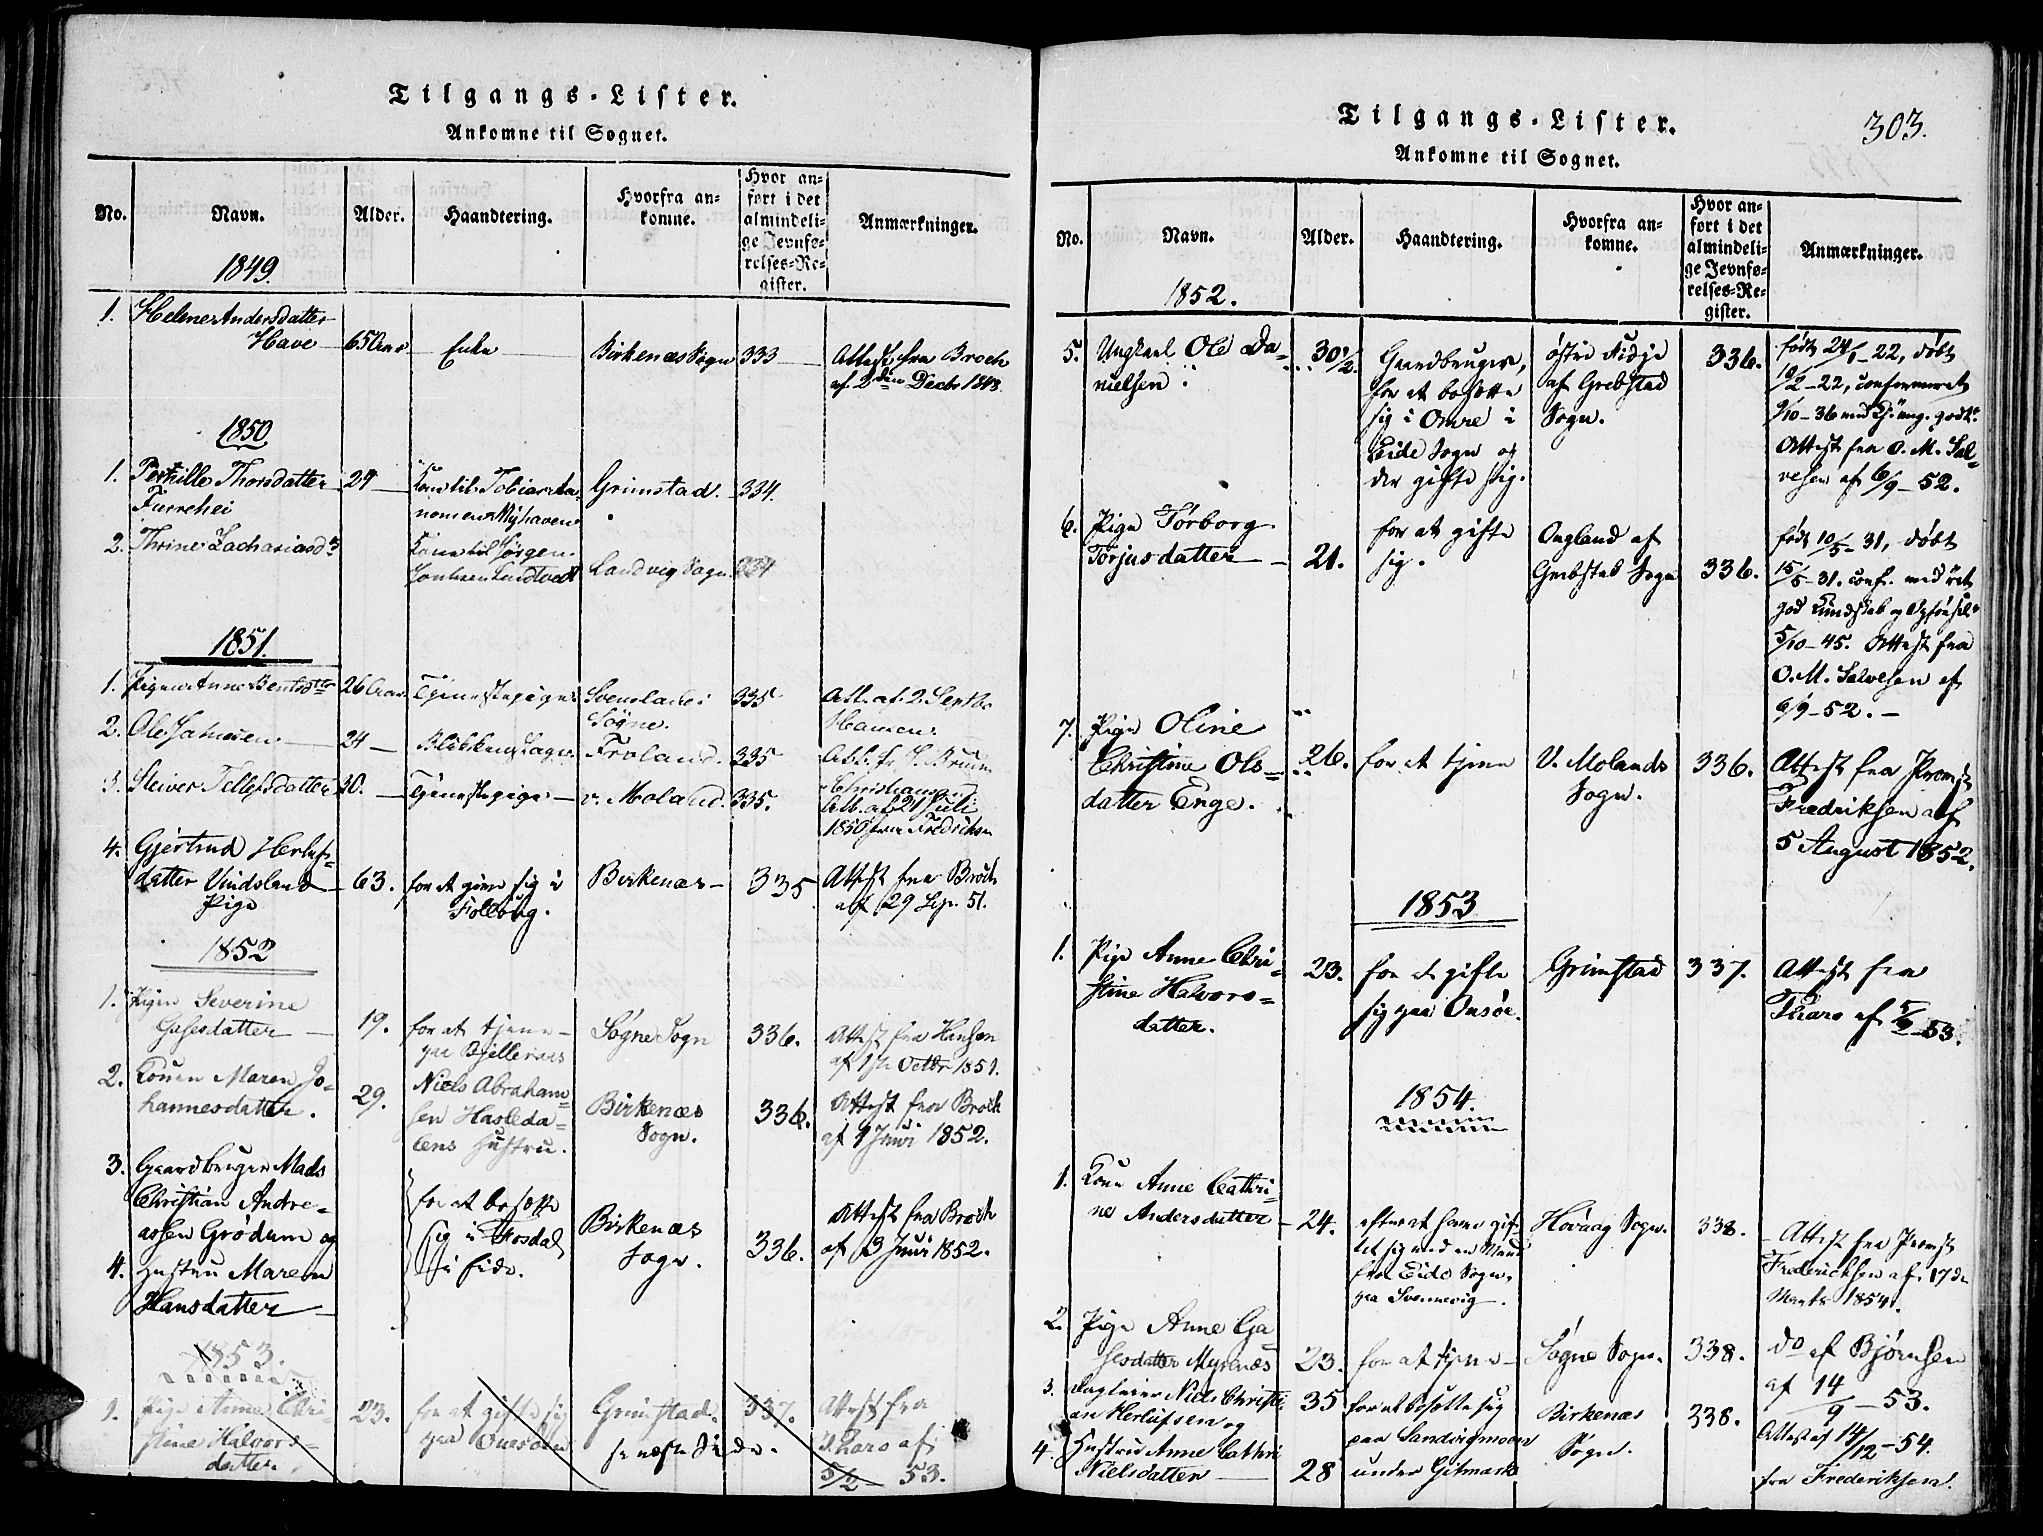 Tilgangs-Lister.
Ankomne til Sognet.
No.
Navn.
Alder.
Haandtering.
Hvorfra an=
komne.
Hvor an=
ført i det
almindeli=
ge Jevnfø=
relses=Re=
gister.
Anmærkninger.
1849.
1. Helene Andersdatter
Have 65 Aar Enke Birkenæs Sogn 333 Attest fra Broch
af 2den Decbr 1848.
1850
1. Pernille Thorsdatter 29 Kone til Tobias Grimstad. 334.
Furrehei
2. Thrine Zachariasd. Kone til Jørgen
Landvig Sogn. 334
1851.
1. Pigen Anne 26 Aar Tjenestepige 335 Att. af 2 Septbr
Søgne. Hansen.
2. Ole 24 Froland. 335
3. Tellefsdatter 30. Tjenestepige v. Moland. 335. Att. af 21 Juli
1850 fra Fredriksen
4. Gjertrud Herlufs=
datter Vindsland 63. for at give sig i Birkenæs 335 Attest fra Broch
Pige Folevog. af 29 Sep. 51.
1852
1. Pigen Severine
datter 19. for at tjene Søgne Sogn 336. Attest fra Hansen
paa af 1ste Octbr 1851.
2. Konen Maren Jo=
hannesdatter. 29. Niels Abraham=
sen Hasleda=
lens Hustru. Birkenæs
Sogn. 336. Attest fra Broch
af 1 Juni 1852.
3. Gaardbruger Mads
Christian Andre=
assen Grødum og
4. Hustru Maren
Hansdatter
for at bosætte
sig i Mosdal
i Eide.
Birkenæs
Sogn. 336. Attest fra Broch
af 3 Juni 1852.
1853.
1. Pige Anne Chri=
stine Halvors=
datter. 23. for at gifte sig
paa Grimstad. 337. Attest fra
Tharo af
se næste Side. 5/2 53.
Tilgangs-Lister.
303.
Ankomne til Sognet.
No.
Navn.
Alder.
Haandtering.
Hvorfra an=
komne.
Hvor an=
ført i det
almindeli=
ge Jevnfø=
relses=Re=
gister.
Anmærkninger.
1852.
5. Ungkarl Ole Da=
nielsen 30 1/2. Gaardbruger,
for at bosætte
sig i Omre i
Eide Sogn og
der gifte sig.
østre Fidje
af Grebstad
Sogn.
336. født 24/1-22, døbt
10/2-22, confirmeret
9/10-36 med
Attest fra O. M. Sal=
vesen af 6/9-52.
6. Pige Torborg
Torjusdatter 21. for at gifte
sig.
Ougland af
Grebstad Sogn 336. født 10/5-31, døbt
15/5-31. conf. med
god Kundskab og Opførsel
5/10-45. Attest fra
O. M. Salvesen af
9/9-52.
7. Pige Oline
Christine Ols=
datter Enge. 26. for at tjene V. Molands
Sogn. 336. Attest fra Provst
Fredriksen af
5 August 1852.
1853
1. Pige Anne Chri=
stine Halvors=
datter. 23. for at gifte
sig paa Onsøe. Grimstad 337. Attest fra
Tharo af 5/2-53.
1854.
1. Kone Anne Cathri=
ne Andersdatter 24. efter at have gif=
tet sig med en Mand
fra Eide Sogn,
paa Svennevig. Høvaag Sogn. 338. Attest fra Provst
Fredericksen af 17de
Marts 1854.
2. Pige Anne Ga=
sesdatter Myrenæs 23. for at tjene Søgne Sogn. 338. do af Bjørnsen
af 14/9-53.
3. Niels Christi=
an Herlufsen og 35 for at bosætte sig
paa Sandvigmoen Birkenæs
Sogn. 338. Attest af 14/12-54.
4. Hustru Anne Cathri
Nielsdatter 28 under Gitmark fra Frederiksen.